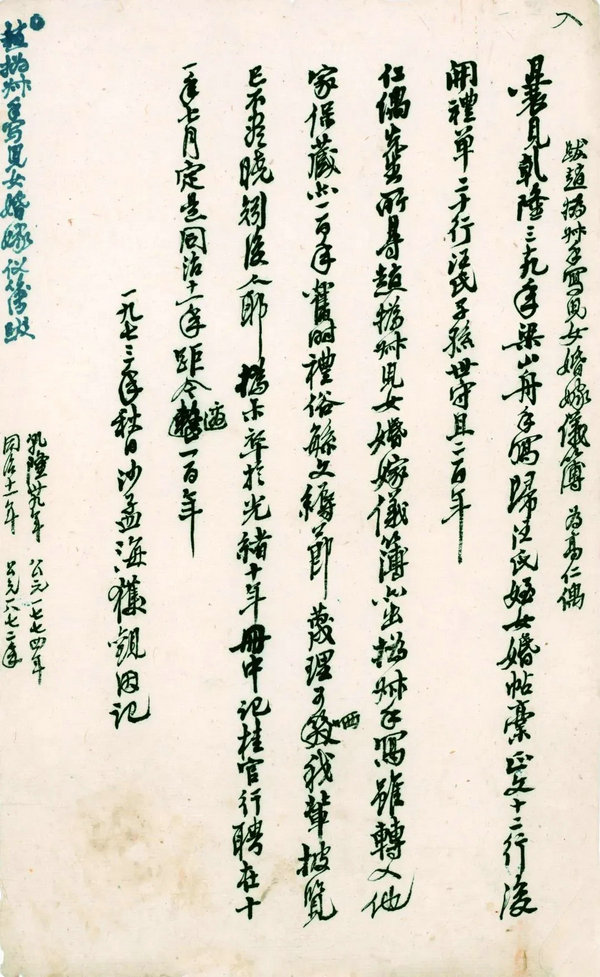 跋趙撝叔手寫兒女婚嫁儀簿 为高仁偶
曩見乾隆三九年梁山舟手寫歸汪氏姪女婚帖稾正文十二行後
開禮單二十行汪氏子孫世守且二百年
仁偶先生所得趙撝叔兒女婚嫁儀簿亦出撝叔手寫雖轉入他
家保藏亦一百年舊時禮俗繇文縟節 蕆理可 哂 我輩披覽
已不盡曉矧後人耶 撝未卒於光緒十年 冊中記桂官行聘在十
一年七月定是同治十一年距今 滿 一百年
一九七三年秋日沙孟海獲觀因記
乾隆卅九年 公元一七七四年
同治十一年 公元一八七二年
趙撝叔手寫兒女婚嫁仪簿跋